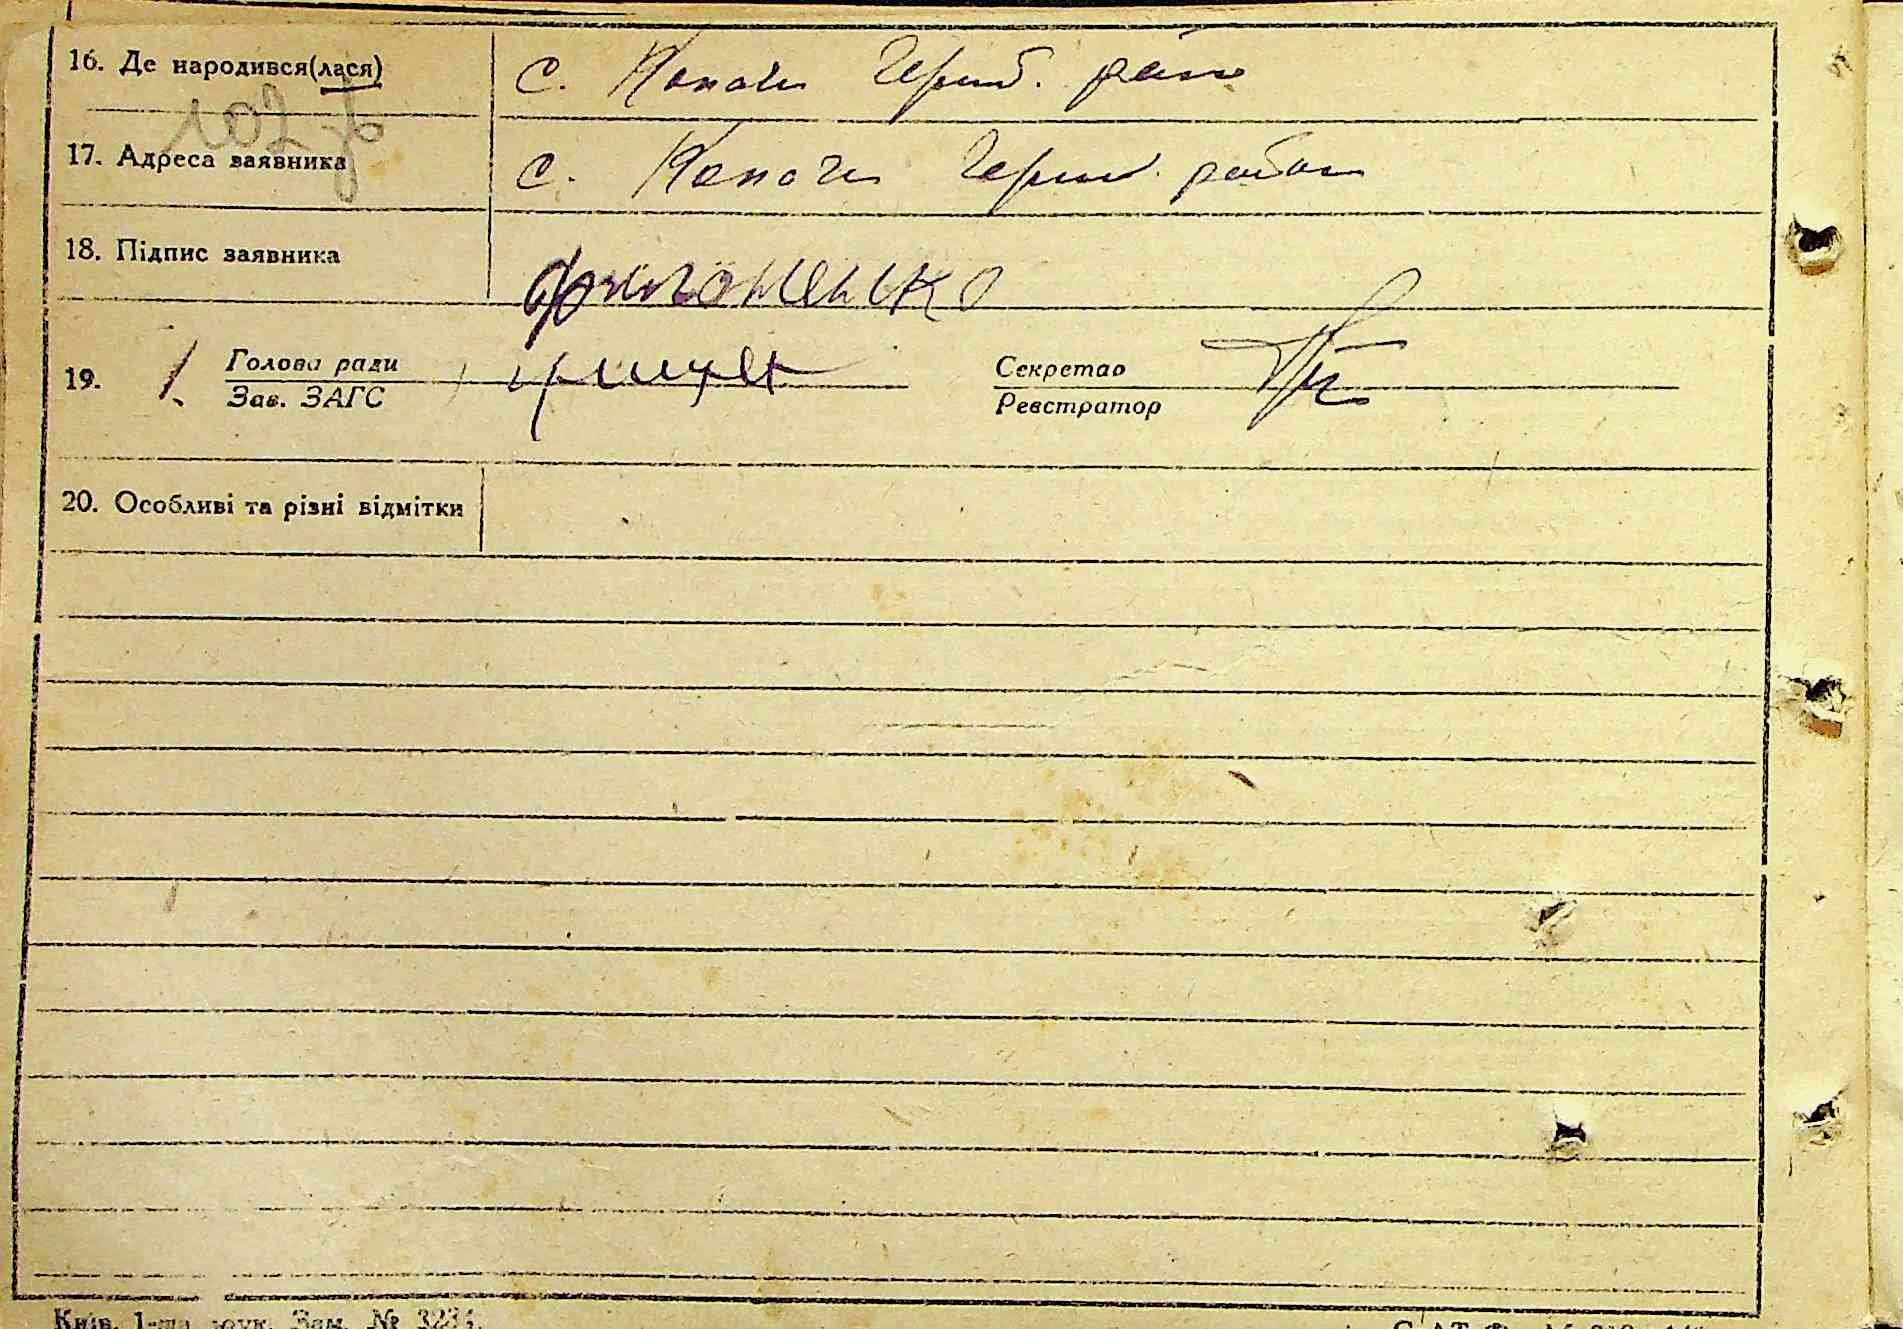 16. Де народився(лася)
с. Копачи Черноб. район
102
17. Адреса заявника
с. Копачи Черноб. район
18. Підпис заявника
19. Голова ради
Зав. ЗАГС
Секретар
Реєстратор
20. Особливі та різні відмітки
Київ, 1-ша друк. Зам. № 3234.